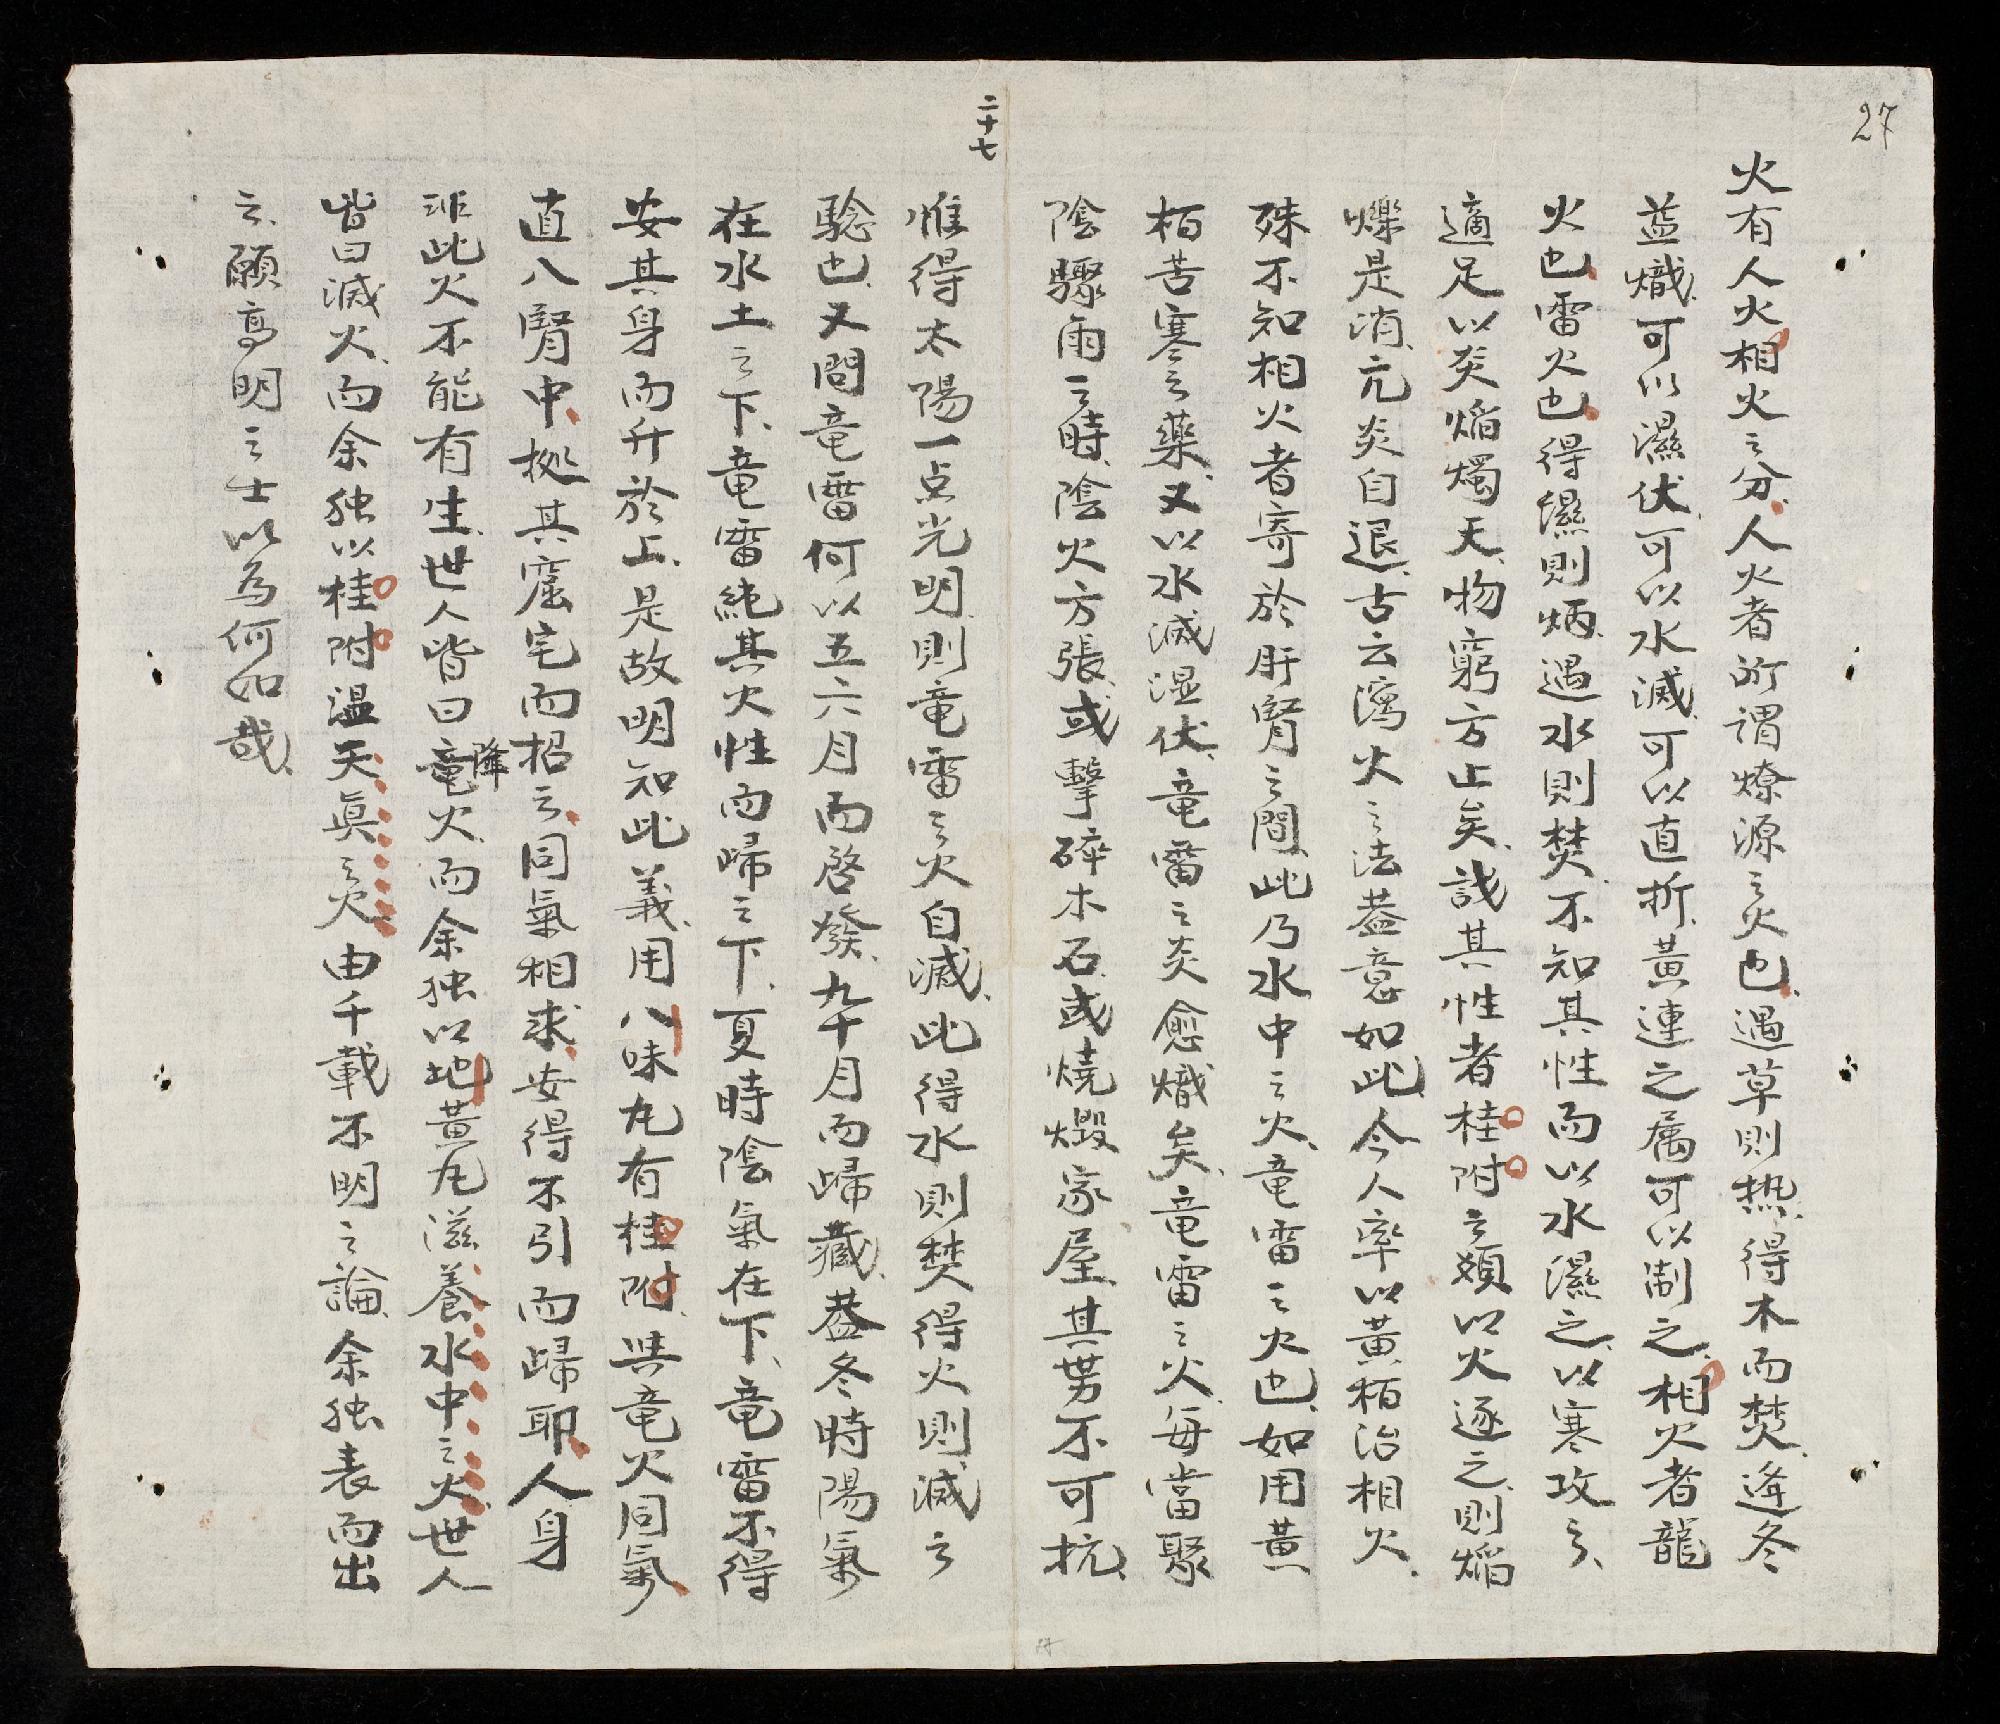 27
火有人火相火之分人火者所謂燎源之火也遇草則热得木而焚逢冬
益熾可以濕伏可以水滅可以直折黃連之属可以制之相火者龍
火也雷火也得濕則焫遇水則焚不知其性而以水濕之以寒攻之
適足以炎焔燭天物窮方止矣識其性者桂附之類以火逐之則焔
爍是消亢炎自退古云瀉火之法蓋意如此今人率以黃栢治相火
殊不知相火者寄於肝腎之間此乃水中之火竜雷之火也如用黃
栢苦寒之藥又以水滅湿伏竜雷之炎愈熾矣竜雷之火每當聚
陰驟雨之時陰火方張或擊碎木石或燒燬家屋其势不可抗
二十七
惟得太陽一点光明則竜雷之火自滅此得水則焚得火則滅之
騐也又問竜雷何以五六月而啓發九十月而歸藏蓋冬時陽氣
在水土之下竜雷純其火性而歸之下夏時陰氣在下竜雷不得
安其身而升於上是故明知此義用八味丸有桂附與竜火同氣
直八腎中拠其窟宅而招之同氣相求安得不引而歸耶人身
班此火不能有生世人皆曰降竜火而余独以地黃丸滋養水中之火世人
皆曰滅火而余独以桂附温天真之火由千載不明之論余独表而出
之願高明之士以為何如哉